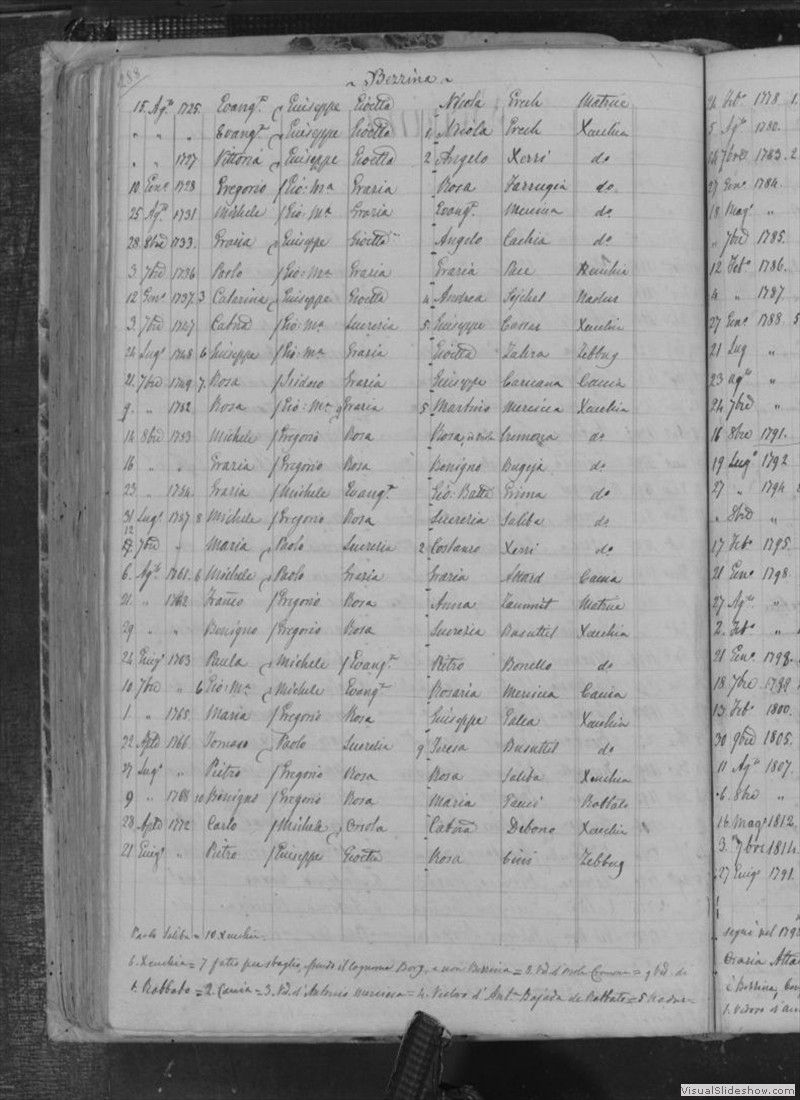 288
~ Bezzina ~
15. Ag.º 1725. Evang.ª Giuseppe Gioetta Nicola Erech Matrice
" " " Evang.ª Giuseppe Gioetta 1 Nicola Erech Xeuchia
" " 1727 Vittoria Giuseppe Gioetta 2 Angelo Xerri do
10 Genº 1728 Gregorio Gio: Mª Grazia Rosa Farrugia do.
25 Agº 1731 Michele Gio: Mª Grazia Evang.ª Mersica do
28. 8bre 1733. Grazia Giuseppe Gioetta Angelo Cachia do
3. 7bre 1736 Paolo Gio: Mª Grazia Grazia Pace Xeuchia
12 Genº 1737. 3 Caterina Giuseppe Gioetta 4 Andrea Nadur
3. 7bre 1747 Gio: Mª Lucrezia 5 Giuseppe Xeuchia
24 Lugº 1748 6 Giuseppe Gio: Mª Grazia Gioetta Zahra Zebbug
21. 7bre 1749 7. Rosa Isidoro Grazia Giuseppe Caruana Caccia
9. " 1752 Rosa Gio: Mª Grazia 5 Martino Mersica Xeuchia
14 8bre 1753 Michele Gregorio Rosa Rosa, Cremona do
16 " " Grazia Gregorio Rosa Benigno Bugeja do
23 " 1754. Grazia Michele Evang.ª Gio: Batta do
31 Lugº 1757 8 Michele Gregorio Rosa Lucrezia Saliba do
12
7bre " Maria Paolo Lucrezia 2 Costanzo Xerri do
6. Agº 1761. 6 Michele Paolo Grazia Grazia Attard Caccia
21. " 1762 Franco Gregorio Rosa Anna Zammit Matrice
29. " " Benigno Gregorio Rosa Lucrezia Busuttil Xeuchia
24 Giugº 1763 Paula Michele Evang.ª Pietro Bonello do
10 7bre " 6 Gio: Mª Michele Evang.ª Rosaria Mersica Caccia
1. " 1765. Maria Gregorio Rosa Giuseppe Galea Xeuchia
22 Aple 1766. Tomaso Paolo Lucrezia 9 Teresa Busuttil do
27 Lugº " Pietro Gregorio Rosa Rosa Saliba Xeuchia
9 " 1768 10 Benigno Gregorio Rosa Maria Gauci Rabbato
28 Aple 1772 Carlo Michele Orsola Debono Xeuchia
21 Giugº " Pietro Giuseppe Gioetta Rosa Zebbug
Paolo Saliba = 10 Xeuchia.
6. Xeuchia = 7 fatto per sbaglio, essendo il cognome Borg, e non Bezzina = 8. Vdº d'Orsola = 9 Vdº de
1. Rabbato = 2. Caccia = 3. Vdº d'Antonio Mersica = 4. Vedovo d' Antª Bajada de Rabbato = 5 Nadur =
24 Febº 1778 1.
5 Agº 1780.
7bre 1783. 2
27 Genº 1784.
18 Magº "
" 7bre 1785.
12 Febº 1786.
4 " 1787.
27 Genº 1788 5
21 Lug "
23 agº "
24 7bre "
16 8bre 1791.
19 Lugº 1792
27 " 1794
" 8bre "
17 Febº 1795.
21 Genº 1798.
27 Agº "
2. Febº "
21 Genº 1798.
18 7bre 1799
13 Febº 1800.
30 9bre 1805.
11 Agº 1807.
6. 8bre "
16. Magº 1812.
3. 7bre 1814.
27 Giugº 1791.
segue nel 179
Grazia Atta
è Bezzina,
1. Vedovo d'
VisualSlideshow.com